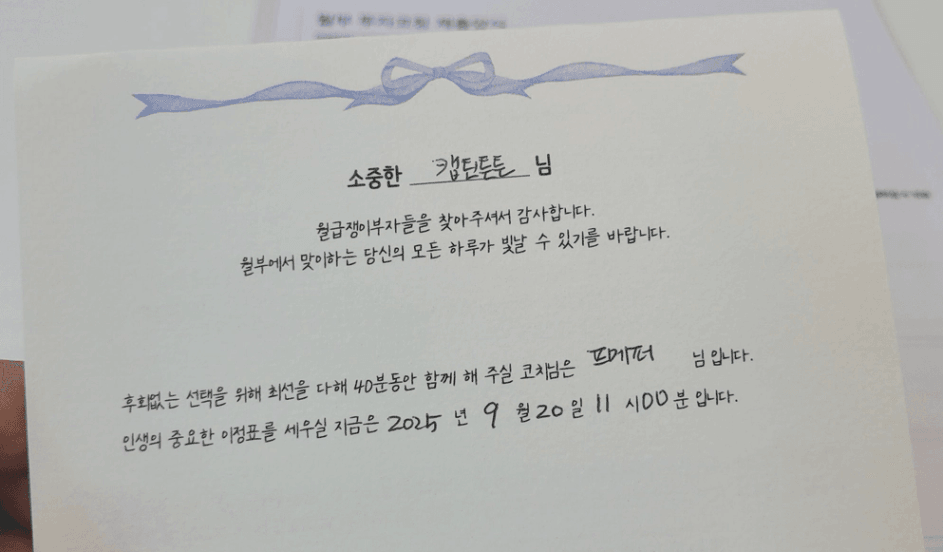 소중한 캡틴튼튼 님
월급쟁이부자들을 찾아주셔서 감사합니다.
월부에서 맞이하는 당신의 모든 하루가 빛날 수 있기를 바랍니다.
후회없는 선택을 위해 최선을 다해 40분동안 함께 해 주실 코치님은 프메퍼 님입니다.
인생의 중요한 이정표를 세우실 지금은 2025 년 9 월 20 일 11 시 00 분 입니다.